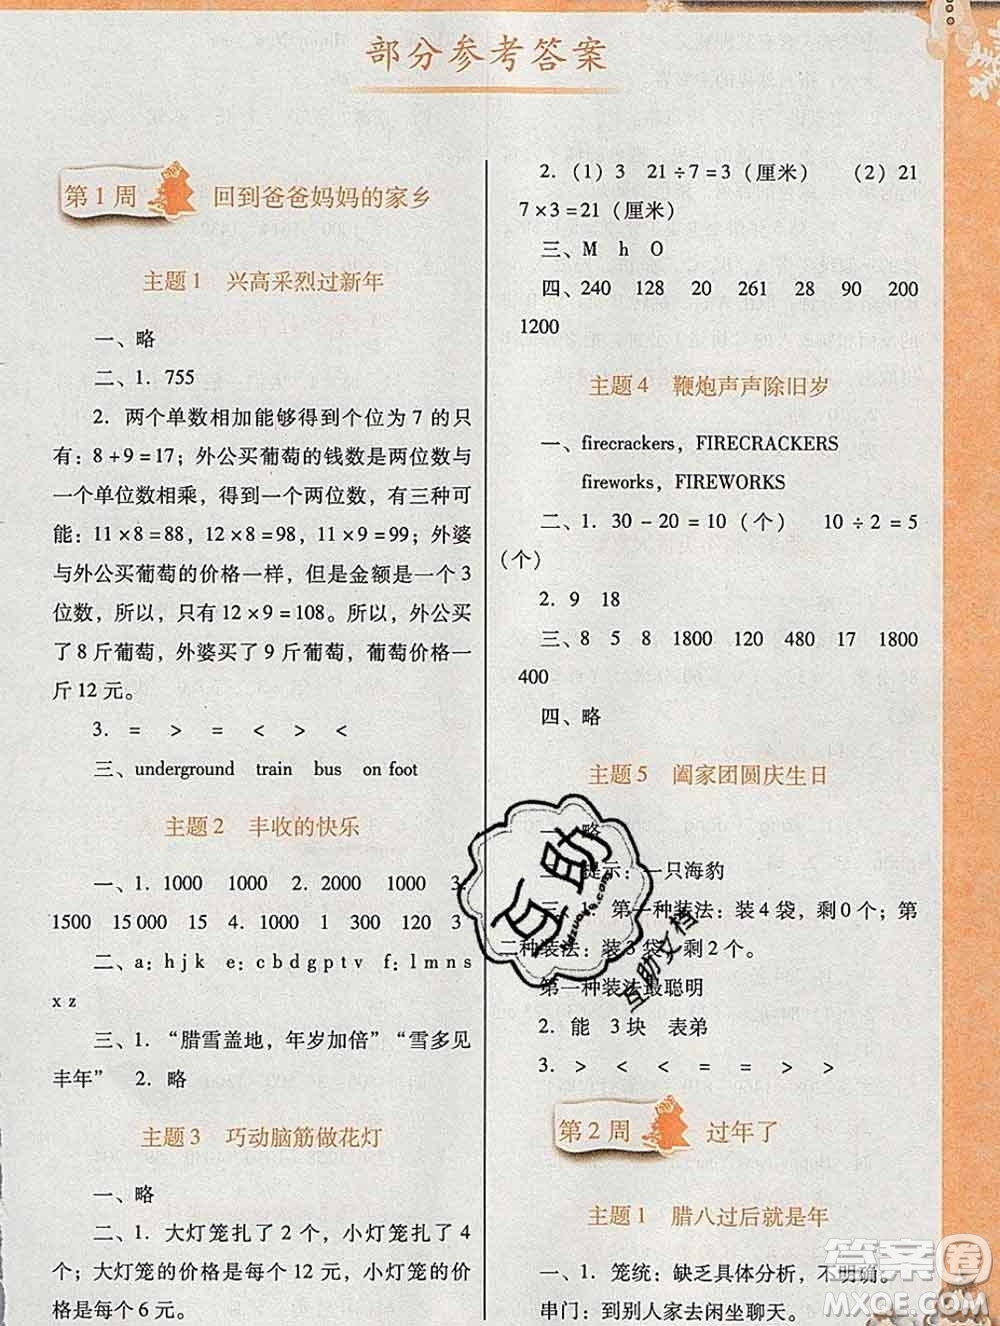 部分参考答案
第1周 回到爸爸妈妈的家乡
主题1 兴高采烈过新年
一、略
二、1. 755
2. 两个单数相加能够得到个位为 7 的只
有: 8+9=17; 外公买葡萄的钱数是两位数与
一个单位数相乘，得到一个两位数，有三种可
能: 11×8=88, 12×8=96, 11×9=99; 外婆
与外公买葡萄的价格一样，但是金额是一个 3
位数，所以，只有 12×9=108。所以，外公买
了 8 斤葡萄，外婆买了 9 斤葡萄，葡萄价格一
斤 12 元。
3. = > = < > <
三、underground train bus on foot
主题2 丰收的快乐
一、1. 1000 1000 2. 2000 1000 3.
1500 15 000 15 4. 1000 1 300 120 3
二、a: h j k e: c b d g p t v f: l m n s
x z
三、1. “腊雪盖地，年岁加倍”“雪多见
丰年” 2. 略
主题3 巧动脑筋做花灯
一、略
二、1. 大灯笼扎了 2 个，小灯笼扎了 4
个；大灯笼的价格是每个 12 元，小灯笼的价
格是每个 6 元。
2. (1) 3 21÷7=3（厘米） (2) 21
7×3=21（厘米）
三、M h O
四、240 128 20 261 28 90 200
1200
主题4 鞭炮声声除旧岁
一、firecrackers, FIRECRACKERS
fireworks, FIREWORKS
二、1. 30-20=10（个） 10÷2=5
（个）
2. 9 18
三、8 5 8 1800 120 480 17 1800
400
四、略
主题5 阖家团圆庆生日
一、略
二、提示：一只海豹
三、1. 第一种装法：装 4 袋，剩 0 个；第
二种装法：装 3 袋，剩 2 个。
第一种装法最聪明
2. 能 3 块 表弟
3. > < < = = >
第2周 过年了
主题1 腊八过后就是年
一、1. 笼统：缺乏具体分析，不明确。
串门：到别人家去闲坐聊天。
互助
互助文档
答案圈
MXQE.COM